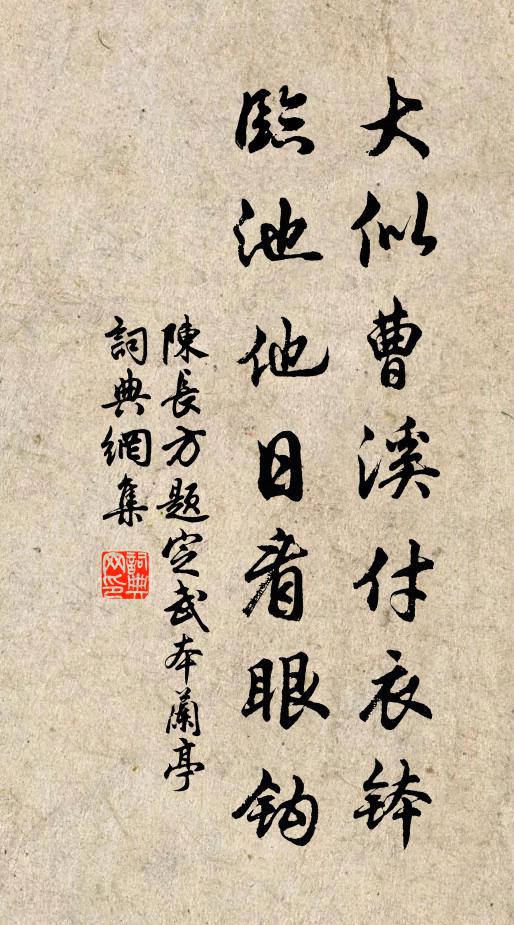 大似曹溪付衣钵
臨池他日看眼钩
陳長方題定武本蘭亭
詞典網集
詞典网印